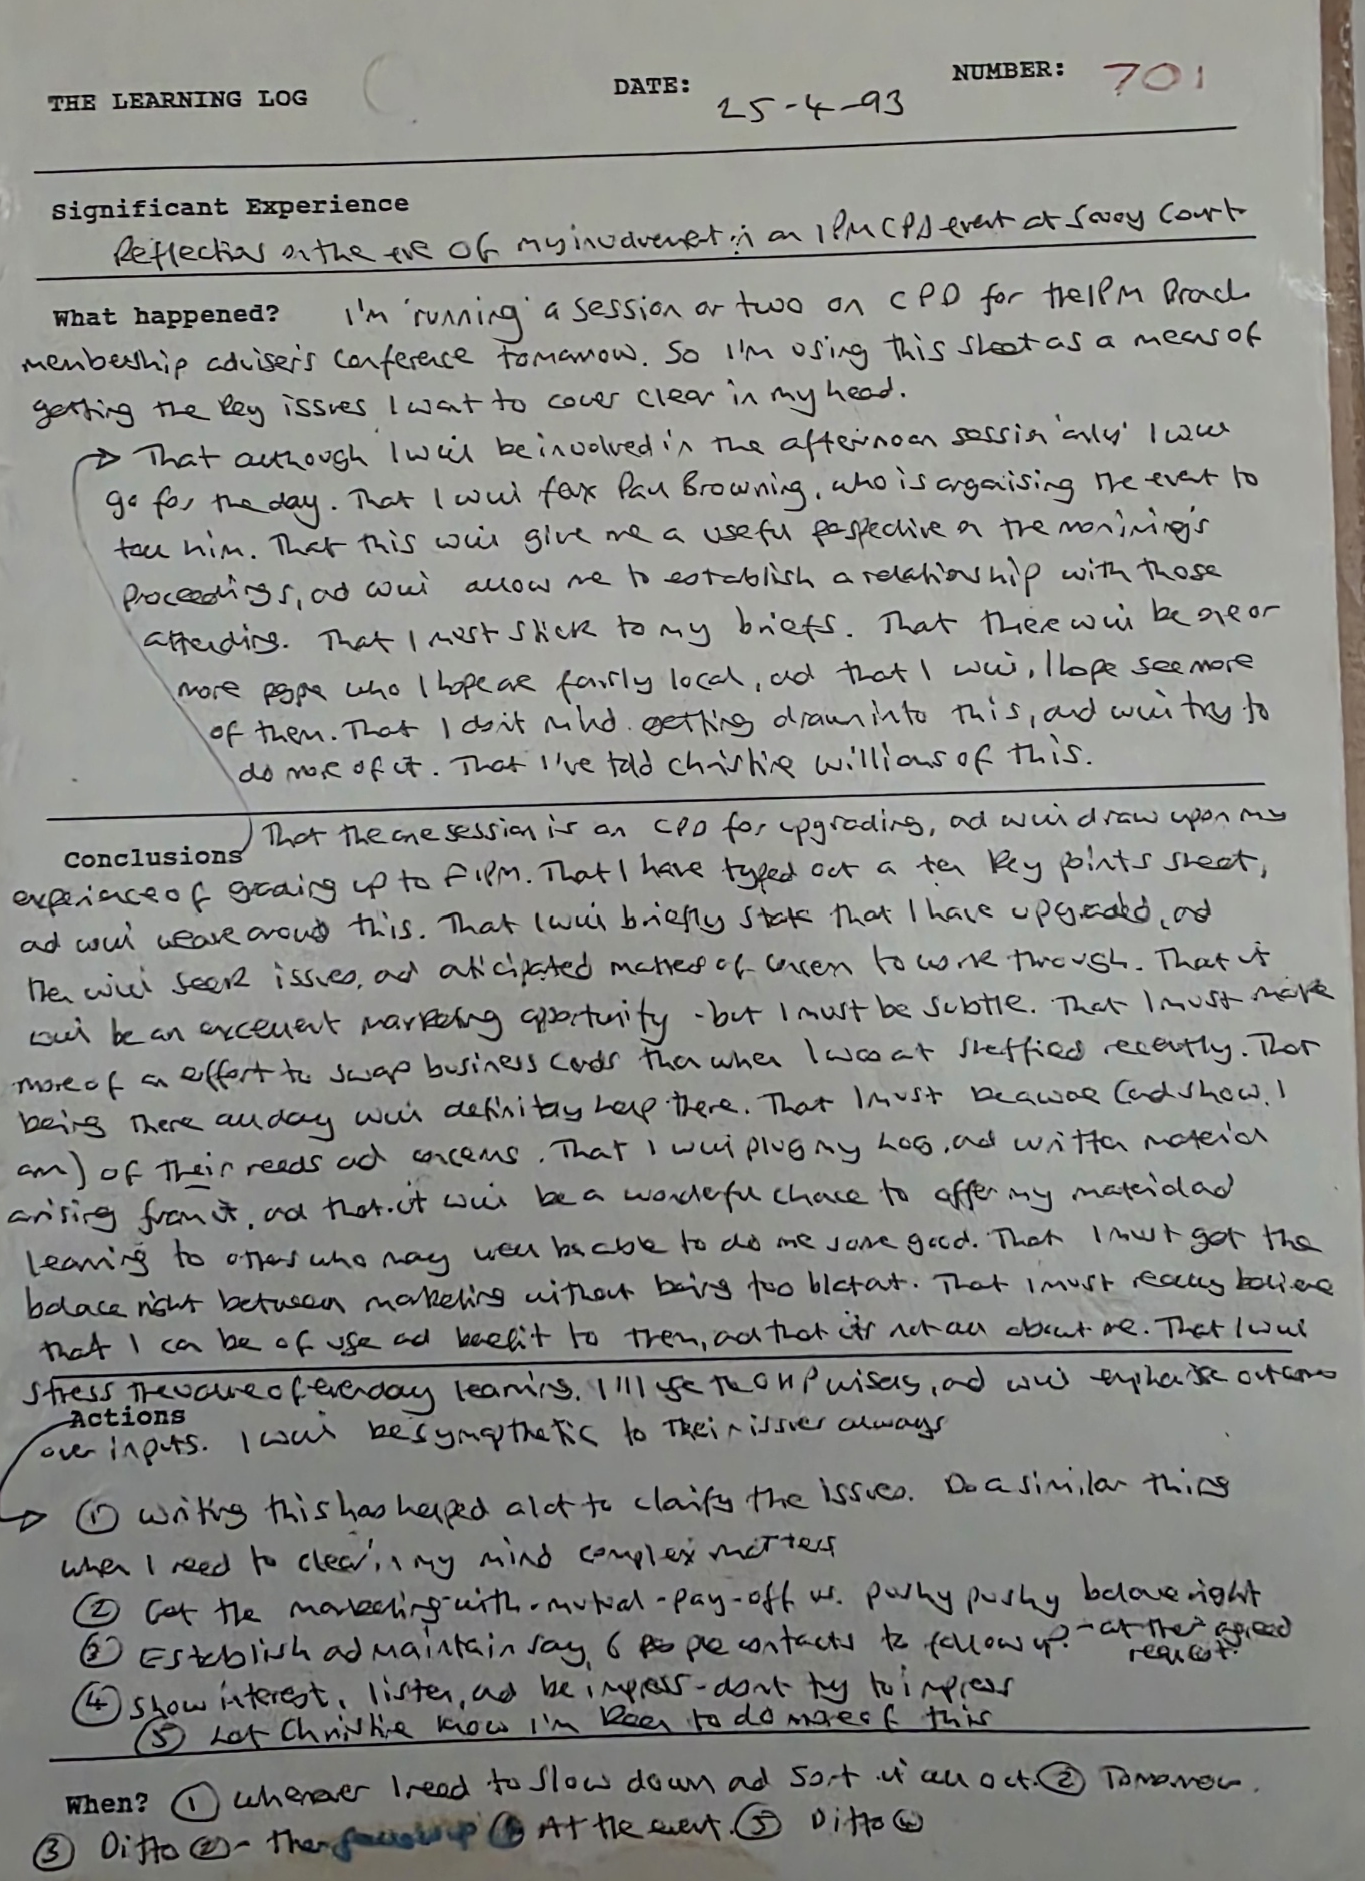 THE LEARNING LOG DATE: 25-4-93 NUMBER: 701
Significant Experience
Reflections on the eve of my involvement in an IPM CPD event at Savoy Court
What happened? I'm 'running' a session or two on CPD for the IPM Branch
membership adviser's conference tomorrow. So I'm using this sheet as a means of
getting the key issues I want to cover clear in my head.
→ That although I will be involved in the afternoon session 'only' I will
go for the day. That I will fax Paul Browning, who is organising the event to
tell him. That this will give me a useful perspective on the morning's
proceedings, and will allow me to establish a relationship with those
attending. That I must stick to my briefs. That there will be one or
more people who I hope are fairly local, and that I will, I hope see more
of them. That I don't mind getting drawn into this, and will try to
do more of it. That I've told Christine Williams of this.
That the one session is on CPD for upgrading, and will draw upon my
Conclusions
experience of grading up to FIPM. That I have typed out a ten key points sheet,
and will weave around this. That I will briefly state that I have upgraded, and
then will seek issues, and anticipated matters of concern to work through. That it
will be an excellent marketing opportunity - but I must be subtle. That I must make
more of an effort to swap business cards than when I was at Sheffield recently. That
being there all day will definitely help there. That I must be aware (and show I
am) of their needs and concerns. That I will plug my Log, and written material
arising from it, and that it will be a wonderful chance to offer my material and
learning to others who may well be able to do me some good. That I must get the
balance right between marketing without being too blatant. That I must really believe
that I can be of use and benefit to them, and that it's not all about me. That I will
stress the value of everday learning. I'll use the OHP wisely, and will emphasise outcomes
Actions
over inputs. I will be sympathetic to their issues always
→ ① Writing this has helped a lot to clarify the issues. Do a similar thing
when I need to clear in my mind complex matters
② Get the marketing-with-mutual-pay-off vs. pushy pushy balance right
③ Establish and maintain say, 6 people contacts to follow up - at their agreed
request.
④ Show interest, listen, and be impress - don't try to impress
⑤ Let Christine know I'm keen to do more of this
When? ① Whenever I need to slow down and sort it all out. ② Tomorrow.
③ Ditto ② - then ④ At the event. ⑤ Ditto ④